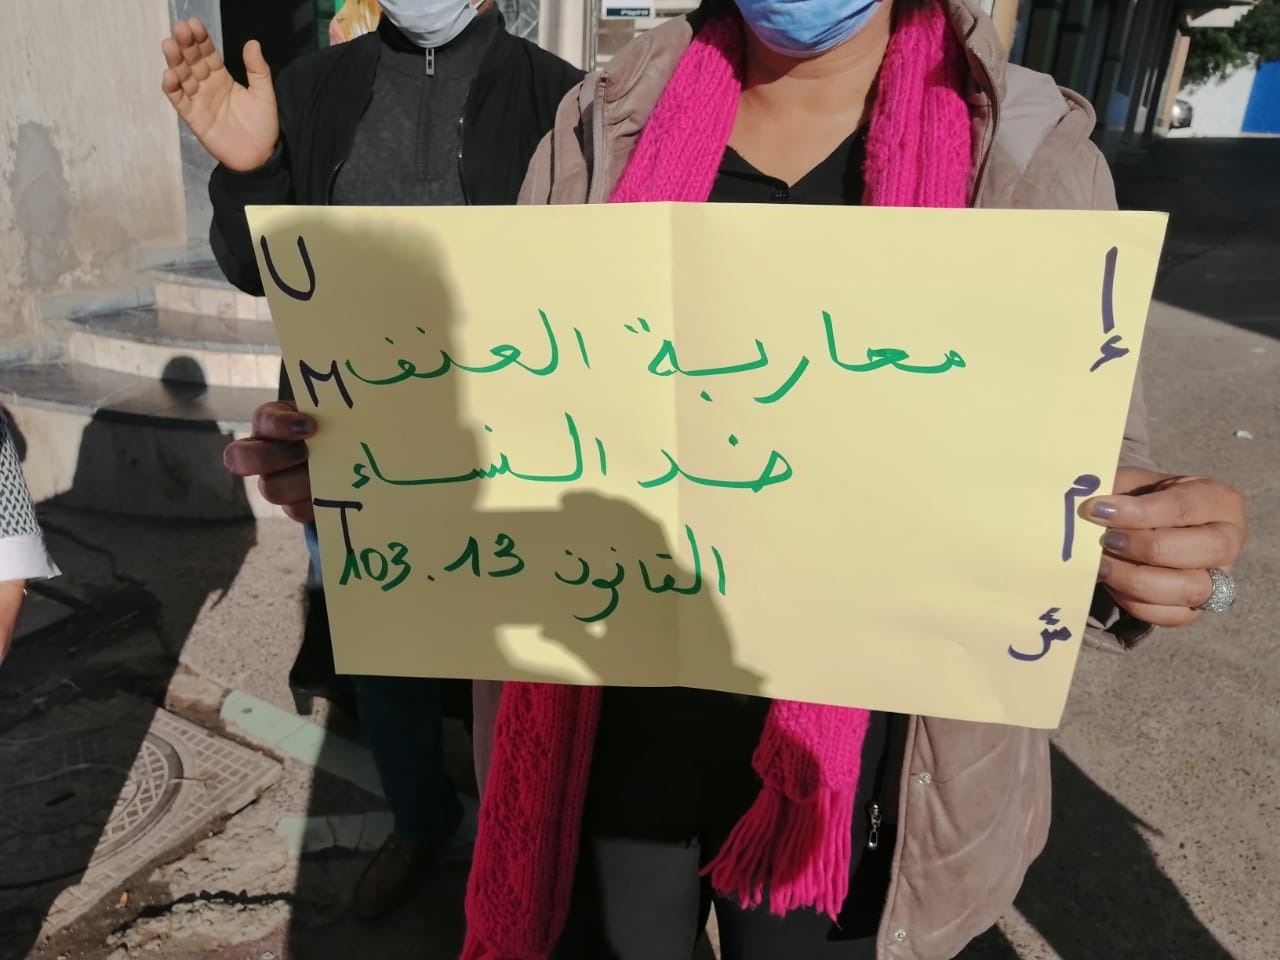 معاربة العنف
ضد النساء
القانون 103.13
U
M
T
إ
م
ش